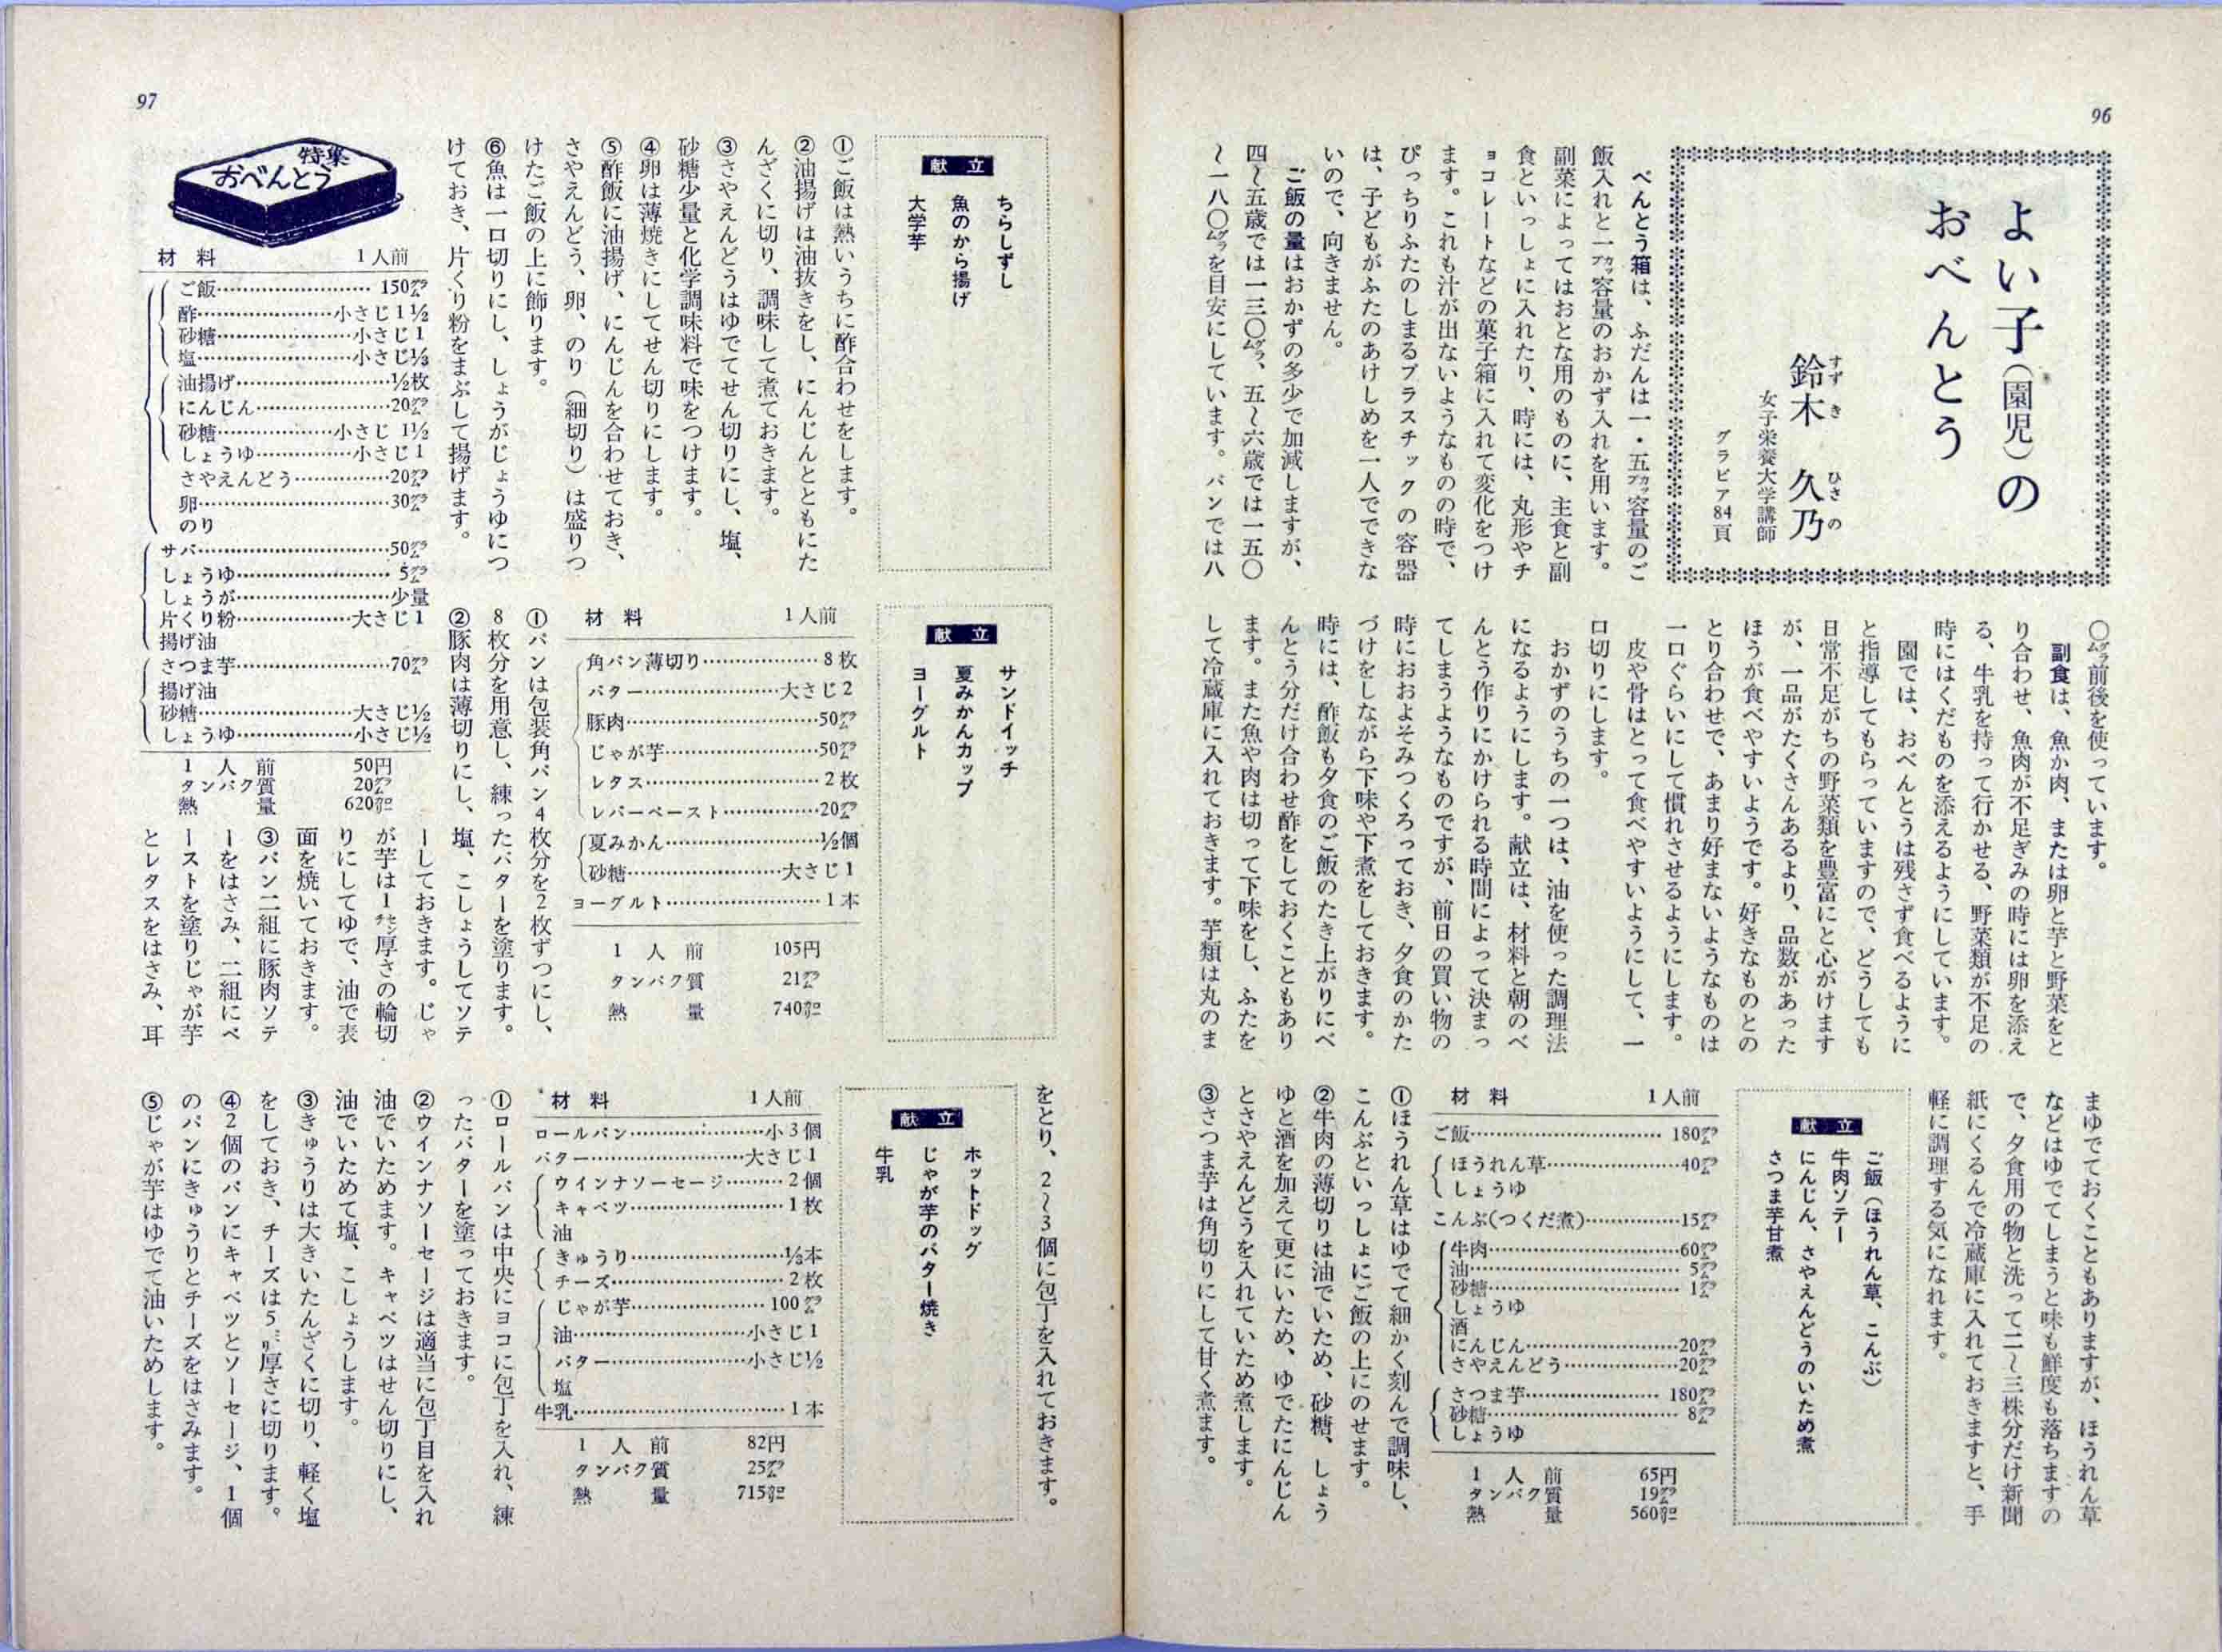 96
よい子(園児)の
おべんとう
鈴木 久乃
すずき ひさの
女子栄養大学講師
グラビア84頁
べんとう箱は、ふだんは一・五カップ容量のご
飯入れと一カップ容量のおかず入れを用います。
副菜によってはおとな用のものに、主食と副
食といっしょに入れたり、時には、丸形やチ
ョコレートなどの菓子箱に入れて変化をつけ
ます。これも汁が出ないようなものの時で、
ぴっちりふたのしまるプラスチックの容器
は、子どもがふたのあけしめを一人でできな
いので、向きません。
ご飯の量はおかずの多少で加減しますが、
四〜五歳では一三〇グラム、五〜六歳では一五〇
〜一八〇グラムを目安にしています。パンでは八
〇グラム前後を使っています。
副食は、魚か肉、または卵と芋と野菜をと
り合わせ、魚肉が不足ぎみの時には卵を添え
る、牛乳を持って行かせる、野菜類が不足の
時にはくだものを添えるようにしています。
園では、おべんとうは残さず食べるように
と指導してもらっていますので、どうしても
日常不足がちの野菜類を豊富にと心がけます
が、一品がたくさんあるより、品数があった
ほうが食べやすいようです。好きなものとの
とり合わせで、あまり好まないようなものは
一口ぐらいにして慣れさせるようにします。
皮や骨はとって食べやすいようにして、一
口切りにします。
おかずのうちの一つは、油を使った調理法
になるようにします。献立は、材料と朝のべ
んとう作りにかけられる時間によって決まっ
てしまうようなものですが、前日の買い物の
時におおよそみつくろっておき、夕食のかた
づけをしながら下味や下煮をしておきます。
時には、酢飯も夕食のご飯のたき上がりにべ
んとう分だけ合わせ酢をしておくこともあり
ます。また魚や肉は切って下味をし、ふたを
して冷蔵庫に入れておきます。芋類は丸のま
まゆでておくこともありますが、ほうれん草
などはゆでてしまうと味も鮮度も落ちますの
で、夕食用の物と洗って二〜三株分だけ新聞
紙にくるんで冷蔵庫に入れておきますと、手
軽に調理する気になれます。
献立
ご飯(ほうれん草、こんぶ)
牛肉ソテー
にんじん、さやえんどうのいため煮
さつま芋甘煮
材料 1人前
ご飯……180グラム
ほうれん草……40グラム
しょうゆ
こんぶ(つくだ煮)……15グラム
牛肉……60グラム
油……5グラム
砂糖……1グラム
しょうゆ
酒
にんじん……20グラム
さやえんどう……20グラム
さつま芋……180グラム
砂糖……8グラム
しょうゆ
1人前 65円
タンパク質 19グラム
熱量 560カロリー
①ほうれん草はゆでて細かく刻んで調味し、
こんぶといっしょにご飯の上にのせます。
②牛肉の薄切りは油でいため、砂糖、しょう
ゆと酒を加えて更にいため、ゆでたにんじん
とさやえんどうを入れていため煮します。
③さつま芋は角切りにして甘く煮ます。
97
献立
ちらしずし
魚のから揚げ
大学芋
①ご飯は熱いうちに酢合わせをします。
②油揚げは油抜きをし、にんじんとともにた
んざくに切り、調味して煮ておきます。
③さやえんどうはゆでてせん切りにし、塩、
砂糖少量と化学調味料で味をつけます。
④卵は薄焼きにしてせん切りにします。
⑤酢飯に油揚げ、にんじんを合わせておき、
さやえんどう、卵、のり(細切り)は盛りつ
けたご飯の上に飾ります。
⑥魚は一口切りにし、しょうがじょうゆにつ
けておき、片くり粉をまぶして揚げます。
特集
おべんとう
材料 1人前
ご飯……150グラム
酢……小さじ1½
砂糖……小さじ1
塩……小さじ⅓
油揚げ……½枚
にんじん……20グラム
砂糖……小さじ1½
しょうゆ……小さじ1
さやえんどう……20グラム
卵……30グラム
のり
サバ……50グラム
しょうゆ……5グラム
しょうが……少量
片くり粉……大さじ1
揚げ油
さつま芋……70グラム
揚げ油
砂糖……大さじ½
しょうゆ……小さじ½
1人前 50円
タンパク質 20グラム
熱量 620カロリー
献立
サンドイッチ
夏みかんカップ
ヨーグルト
材料 1人前
角パン薄切り……8枚
バター……大さじ2
豚肉……50グラム
じゃが芋……50グラム
レタス……2枚
レバーペースト……20グラム
夏みかん……½個
砂糖……大さじ1
ヨーグルト……1本
1人前 105円
タンパク質 21グラム
熱量 740カロリー
①パンは包装角パン4枚分を2枚ずつにし、
8枚分を用意し、練ったバターを塗ります。
②豚肉は薄切りにし、塩、こしょうしてソテ
ーしておきます。じゃ
が芋は1センチ厚さの輪切
りにしてゆで、油で表
面を焼いておきます。
③パン二組に豚肉ソテ
ーをはさみ、二組にペ
ーストを塗りじゃが芋
とレタスをはさみ、耳
をとり、2〜3個に包丁を入れておきます。
献立
ホットドッグ
じゃが芋のバター焼き
牛乳
材料 1人前
ロールパン……小3個
バター……大さじ1
ウインナソーセージ……2個
キャベツ……1枚
油
きゅうり……⅓本
チーズ……2枚
じゃが芋……100グラム
油……小さじ1
バター……小さじ½
塩
牛乳……1本
1人前 82円
タンパク質 25グラム
熱量 715カロリー
①ロールパンは中央にヨコに包丁を入れ、練
ったバターを塗っておきます。
②ウインナソーセージは適当に包丁目を入れ
油でいためます。キャベツはせん切りにし、
油でいためて塩、こしょうします。
③きゅうりは大きいたんざくに切り、軽く塩
をしておき、チーズは5ミリ厚さに切ります。
④2個のパンにキャベツとソーセージ、1個
のパンにきゅうりとチーズをはさみます。
⑤じゃが芋はゆでて油いためします。